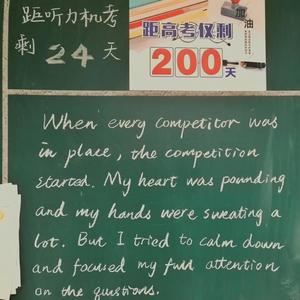 距听力机考
剩 24 天
加油
距高考仅剩
200天
When every competitor was
in place, the competition
started. My heart was pounding
and my hands were sweating a
lot. But I tried to calm down
and focused my full attention
on the questions.